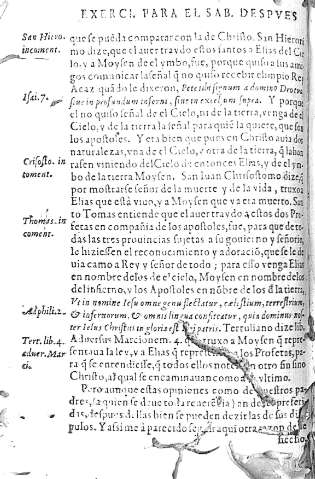 EXERCI. PARA EL SAB. DESPVES
San Hiero. in coment.
Isai. 7.
Crisosto. in coment.
Thomas. in coment.
Ad phili. 2.
Tert. lib. 4. aduer. Marci.
que se pueda comparar con la de Christo. San Hieroni
mo dize, que el auer traydo estos santos a Elias del Cie
lo, y a Moysen del Lymbo, fue, porque quiso a sus ami
gos comunicar la señal q̃ no quiso rebelir el impio Rey
Acaz quãdo le dixeron, Pete tibi signum a domino Deo tuo
siue in profundum inferni, siue in excelsum supra. Y porque
el no quiso señal de el Cielo, ni de la tierra, venga de el
Cielo, y de la tierra la señal para quiẽ la quiere, que son
los apostoles. Y era bien que pues en Christo auia dos
naturalezas, vna de el Cielo, y otra de la tierra, q̃ la hõ
rasen viniendo del Cielo de entonces Elias, y de el ym
bo de la tierra Moysen. San Iuan Chrisostomo dize, q̃
por mostrarse señor de la muerte y de la vida, truxo a
Elias que está viuo, y a Moysen que ya era muerto. San
to Tomas entiende que el auer traydo a estos dos Pro
fetas en compañia de los apostoles, fue, para que de to
das las tres prouincias sujetas a su gouierno y señorio,
le hiziessen el reconocimiento y adoració, que se le de
uia como a Rey y señor de todo; para esso venga Elias
en nombre de los de el cielo, Moysen en nombre de los
del infierno, y los Apostoles en nõbre de los d̃ la tierra,
Vt in nomine Iesu omne genu flectatur, cælestium, terrestrium,
& infernorum. & omnis lingua confiteatur, quia dominus nos-
ter Iesus Christus in gloria est Dei patris. Tertuliano dize lib.
Aduersus Marcionem. 4. que truxo a Moysen q̃ repre-
sentaua la ley, y a Elias q̃ representa los Profetas, pa-
ra q̃ se entendiesse, q̃ todos ellos no tenian otro fin sino
Christo, al qual se encaminauan como a vltimo.
Pero aunque estas opiniones como de nuestros pa
dres, (a quien se deue toda reuerẽcia) han de ser preferi
das, despues d̃ ellas bien se pueden dezir las de sus disci
pulos. Y assi me a parecido será aqui otra razon de
hecho